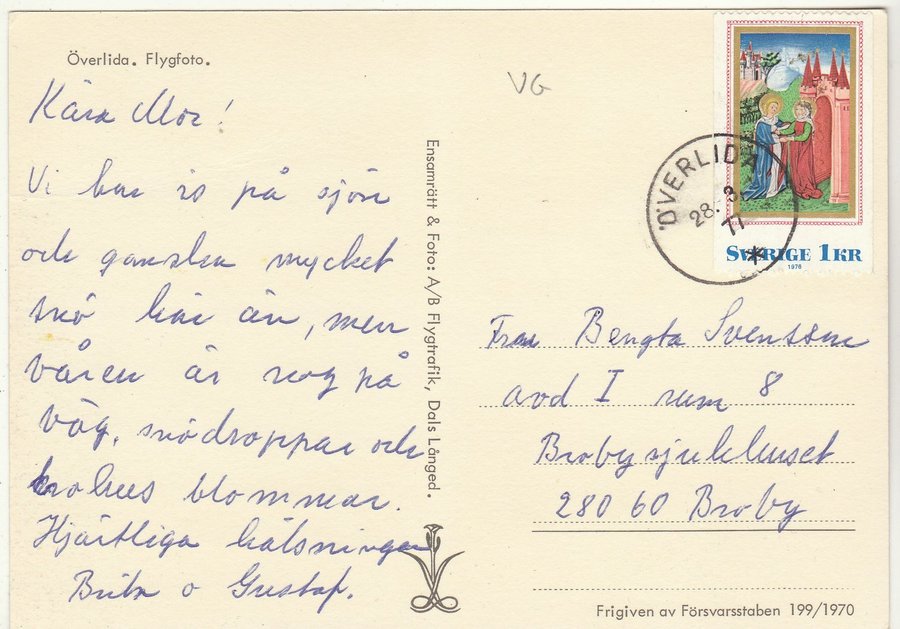 Överlida. Flygfoto.
VG
Kära Mor!
Vi har is på sjön
och ganska mycket
snö här än, men
våren är nog på
väg, snödroppar och
krokus blommar.
Hjärtliga hälsningar
Brita o Gustaf.
Ensamrätt & Foto: A/B Flygtrafik, Dals Långed.
ÖVERLIDA
28.-3
77
*
SVERIGE 1 KR
1976
Fru Bengta Svensson
avd I rum 8
Brobysjukhuset
280 60 Broby
Frigiven av Försvarsstaben 199/1970